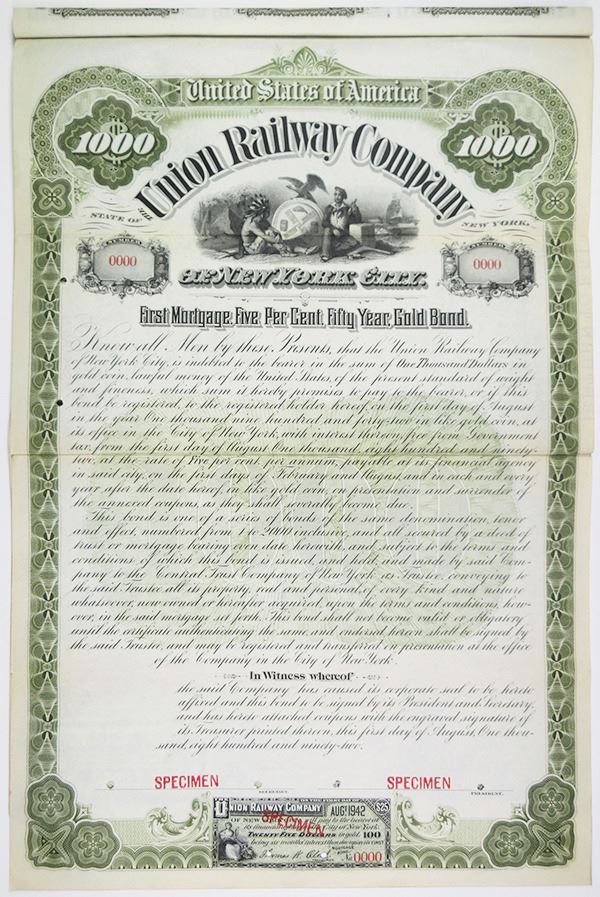 United States of America
$1000
$1000
THE Union Railway Company
STATE OF
NEW YORK.
NUMBER
0000
NUMBER
0000
OF NEW YORK CITY.
First Mortgage, Five Per Cent, Fifty Year, Gold Bond.
Know all Men by these Presents, that the Union Railway Company
of New York City, is indebted to the bearer in the sum of One Thousand Dollars in
gold coin, lawful money of the United States, of the present standard of weight
and fineness, which sum it hereby promises to pay to the bearer, or if this
bond be registered, to the registered holder hereof, on the first day of August
in the year One thousand nine hundred and forty-two in like gold coin, at
its office in the City of New York, with interest thereon, free from Government
tax, from the first day of August One thousand, eight hundred and ninety-
two, at the rate of Five per cent per annum, payable at its financial agency
in said city, on the first days of February and August, and in each and every
year after the date hereof, in like gold coin, on presentation and surrender of
the annexed coupons, as they shall severally become due.
This bond is one of a series of bonds of the same denomination, tenor
and effect, numbered from 1 to 2000 inclusive, and all secured by a deed of
trust or mortgage bearing even date herewith, and subject to the terms and
conditions of which this bond is issued, and held, and made by said Com-
pany to the Central Trust Company of New York as Trustee, conveying to
the said Trustee all its property, real and personal, of every kind and nature
whatsoever, now owned or hereafter acquired, upon the terms and conditions, how-
ever, in the said mortgage set forth. This bond shall not become valid or obligatory
until the certificate authenticating the same, and endorsed hereon shall be signed by
the said Trustee, and may be registered and transferred on presentation at the office
of the Company in the City of New York.
In Witness whereof
the said Company has caused its corporate seal to be hereto
affixed and this bond to be signed by its President and Secretary,
and has hereto attached coupons with the engraved signature of
its Treasurer printed thereon, this first day of August, One thou-
sand, eight hundred and ninety-two.
SPECIMEN
SPECIMEN
SECRETARY.
PRESIDENT.
UNION RAILWAY COMPANY
AUG. 1. 1942
$25
OF NEW YORK
SPECIMEN
TWENTY FIVE DOLLARS in gold,
100
being six months' interest then due upon its FIRST
MORTGAGE
No. 0000